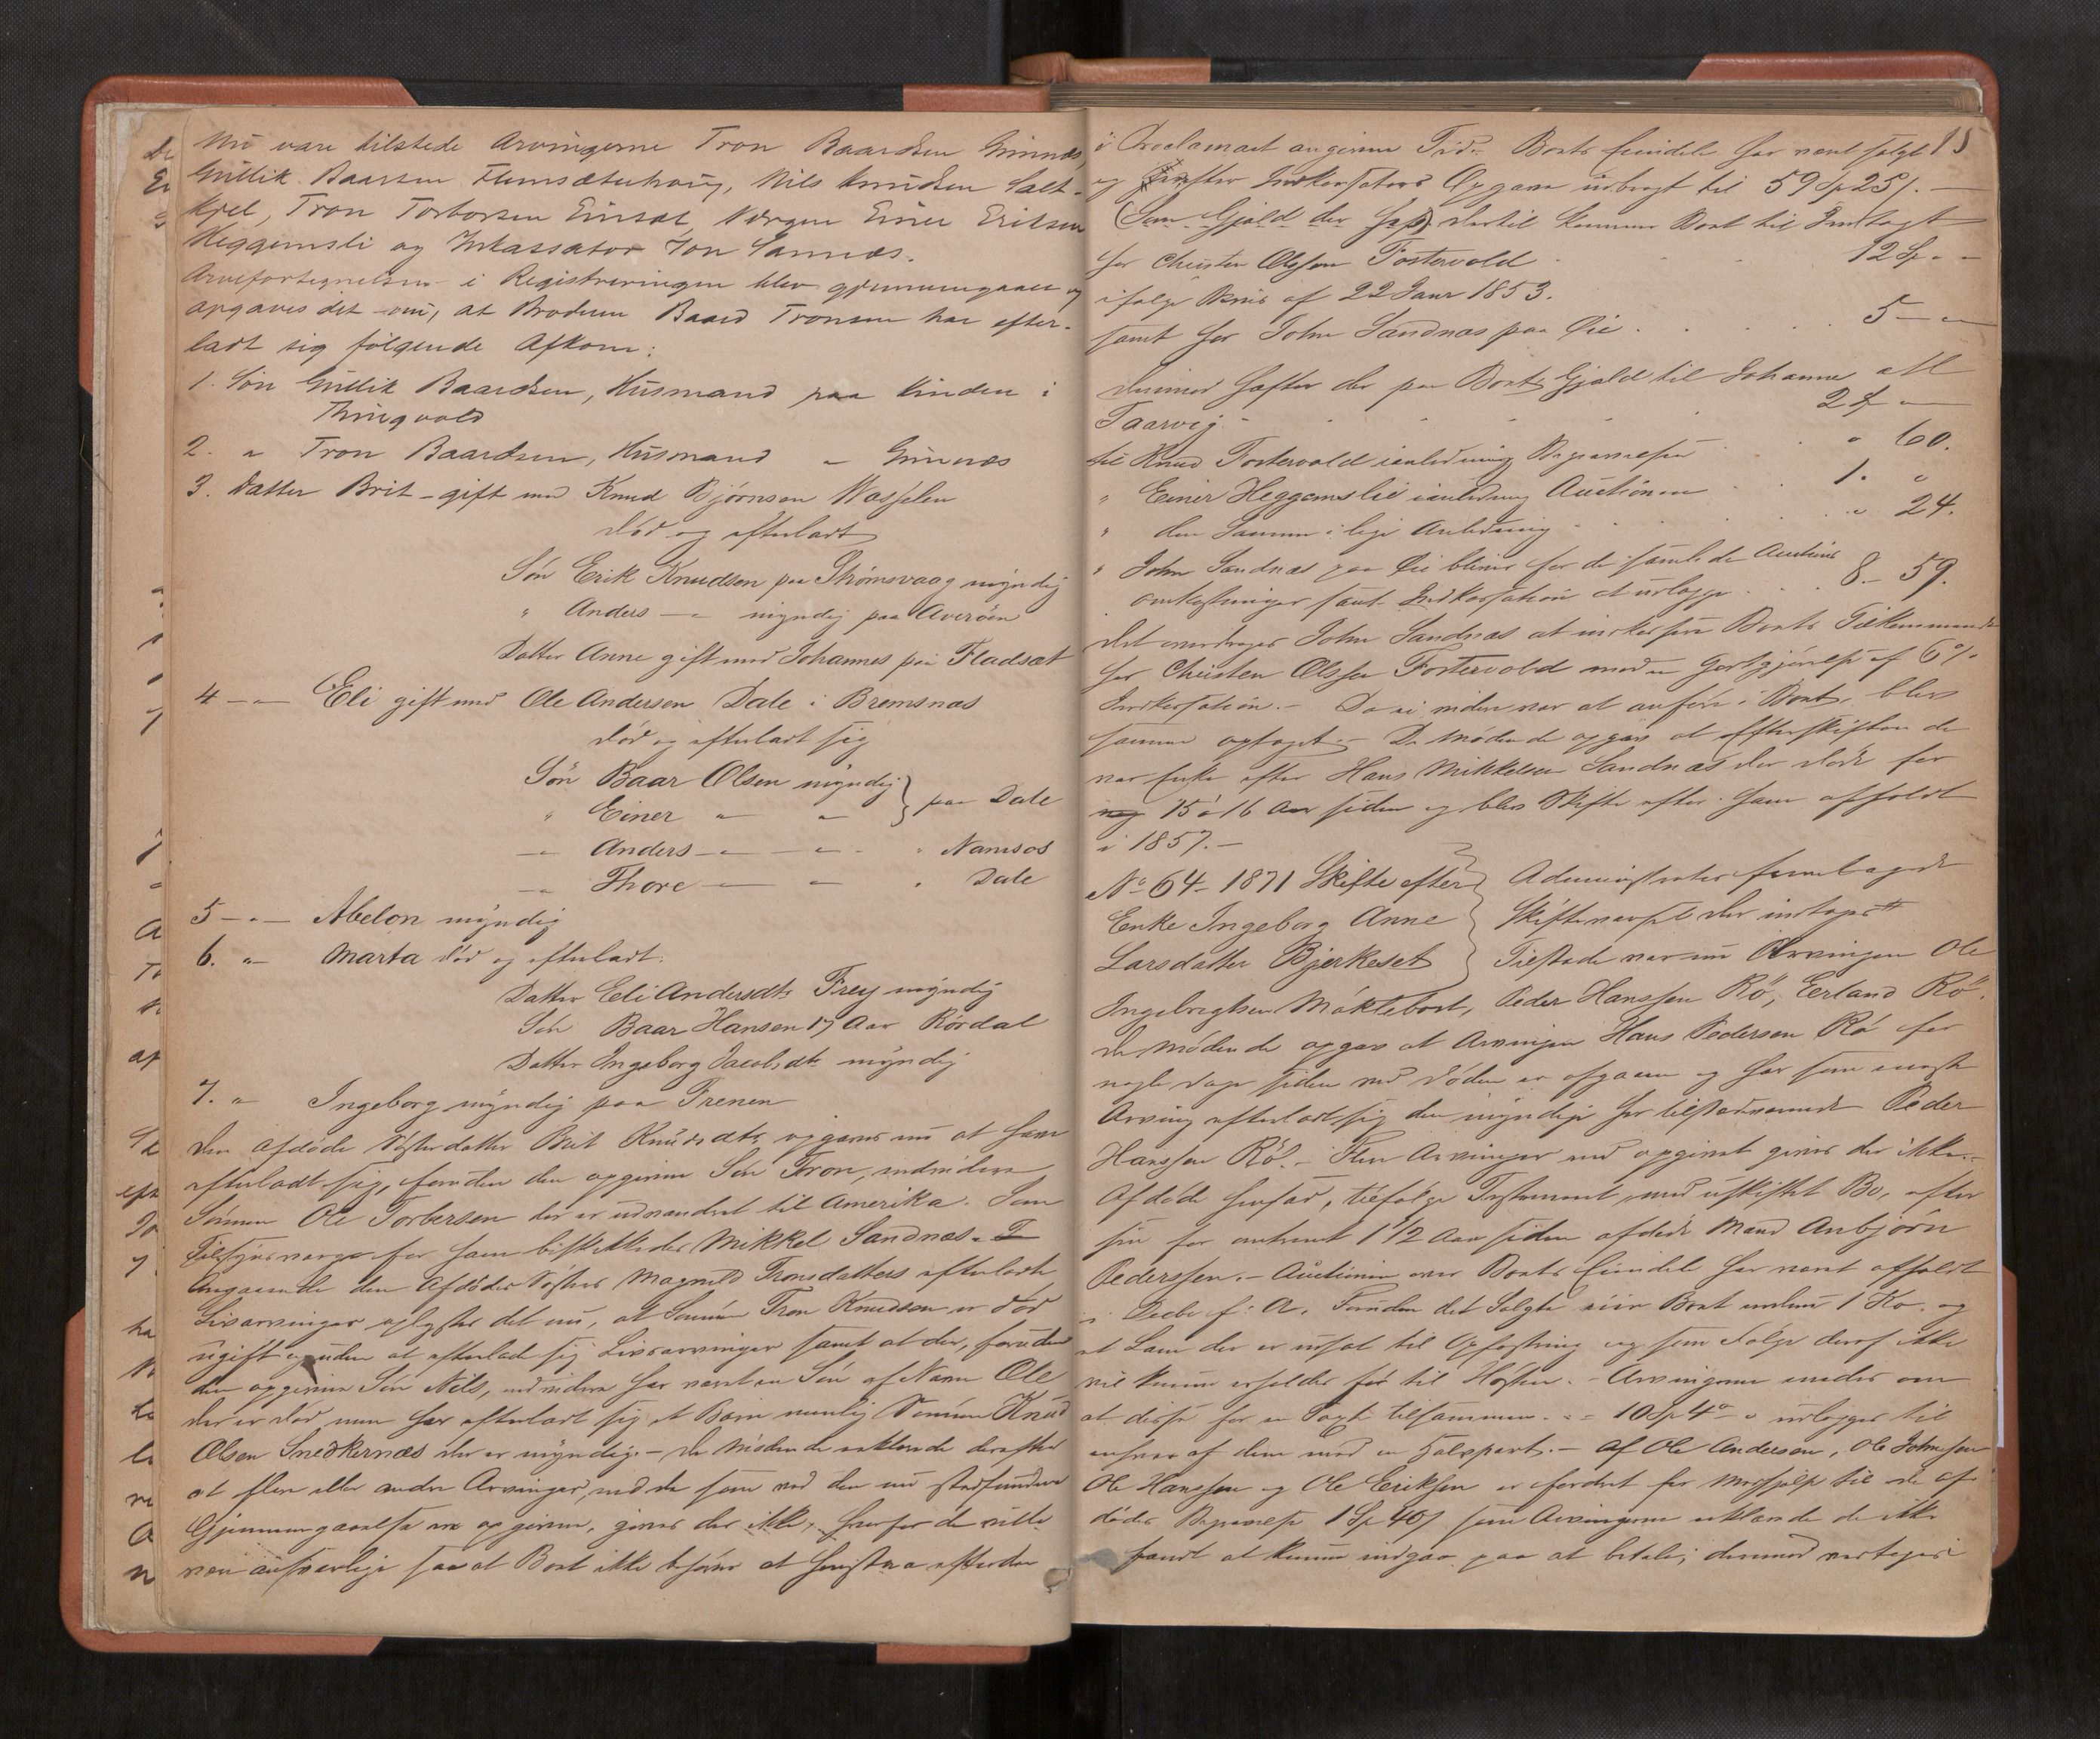 Nu vare tilstede Arvingerne Tron Baardsen Gimnæs,
Gullik Baarsen Flemsæterhaug, Nils Knudsen Salt-
kjel, Tron Torborsen Einsæt, Værgen Einer Eriksen
Heggemsli og Inkassator Jon Sannæs.
Arvefortegnelsen i Registreringen blev gjennemgaaet og
opgaves det nu, at Broderen Baard Tronsen har efter-
ladt sig følgende Afkom:
1. Søn Gullik Baardsen, Husmand paa Kinden i
Thingvold
2. " Tron Baardsen, Husmand " Gimnæs
3. Datter Brit - gift med Knud Bjørnsen
død og efterladt
Søn Erik Knudsen paa Strømsvaag myndig
" Anders — " myndig paa Averøen
Datter Anne gift med Johannes paa Fladsæt
4 — " — Eli gift med Ole Andersen Dale i Bremsnæs
død og efterladt sig
Søn Baar Olsen myndig } paa Dale
" Einer " "
— " Anders — " — " — " Namsos
— " Thore — " — " Dale
5 — " — Abelon myndig
6. " — Marta død og efterladt:
Datter Eli Andersdtr Frey myndig
Søn Baar Hansen 17 Aar Rørdal
Datter Ingeborg Jacobsdtr myndig
7. " Ingeborg myndig paa Trenen
Den afdøde Søsterdatter Brit Knudsdtr opgaves nu at have
efterladt sig, foruden den opgivne Søn Tron, endvidere
Sønnen Ole Torbersen der er udvandret til Amerika. Som
Tilsynsværge for ham beskikkedes Mikkel Sandnæs.
Angaaende den Afdødes Søster Magnild Tronsdatters efterladte
Livsarvinger oplystes det nu, at Sønnen Tron Knudsen er død
ugift og uden at efterlade sig Livsarvinger samt at der, foruden
den opgivne Søn Nils, endvidere har været en Søn af Navn Ole
der er død, men har efterladt sig et Barn nemlig Sønnen Knud
Olsen Snedkernæs der er myndig. - De Mødende erklærede derefter
at flere eller andre Arvinger, end de som ved den nu stedfundne
Gjennemgaaelse ere opgivne, gives der ikke, hvorfor de ville
være ansvarlige saa at Boet ikke behøver at efter den
i Proclamaet angivne Tid. Boets Eiendele har været solgt 15
og efter Inkassators Opgave udbragt til 59 Sp 25 s. —
dertil kommer Boet til Indtægt
hos Christen Olssen Fostervold . . . 12 Sp " "
ifølge Bevis af 22 Janr 1853.
samt hos John Sandnæs paa Øie . . . 5 — "
Derimod hefter der paa Boet Gjæld til Johanne
Taarvig . . . 2 Sp " —
til Knud Fostervold i anledning Begravelsen . . " 60.
" Einer Heggemslie i anledning Auctionen . . 1. "
" den Samme i lige Anledning . . . " 24.
" John Sandnæs paa Øie bliver for de samlede Auctions
omkostninger samt Indkassation at udlægge . . 8 - 59.
Det overdroges John Sandnæs at inkassere Boets Tilkommende
hos Christen Olssen Fostervold mod en Godtgjørelse af 6%
Indkassation. - Da ei videre var at anføre i Boet, blev
samme optaget. - De Mødende opgav at Efterskiftede
var Enke efter Hans Mikkelsen Sandnæs der døde for
15 à 16 Aar siden og blev Skifte efter ham afholdt
i 1857. —
No 64 - 1871 Skifte efter } Administrator foretaget
Enke Ingeborg Anne } Skiftevæsenet der indtoges
Larsdatter Bjerkeset } Tilstede var nu Arvingen Ole
Ingebregtsen Møklebost, Peder Hanssen Rø, Eerland Rø.
De Mødende opgav at Arvingen Hans Pedersen Rø for
nogle Dage siden ved Døden er afgaaen og har som eneste
Arving efterladt sig den myndige her tilstedeværende Peder
Hanssen Rø. - Flere Arvinger end opgivet gives der ikke. -
Afdøde hensad, tilfølge Testament, med uskiftet Bo, efter
sin for omtrent 1 1/2 Aar siden afdøde Mand Anbjørn
Pederssen. - Auctionen over Boets Eiendele har været afholdt
i Decbr f: A. Foruden det Solgte eier Boet endnu 1 Ko og
et Lam der er udsat til Opfostring og som Følge deraf ikke
vil kunne erholdes før til Høsten. - Arvingerne enedes om
at disse for en Taxt tilsammen . . . 10 Sp 4 " " udlægges til
enhver af dem med en Halvpart. - Af Ole Andersen, Ole Johnsen
Ole Hanssen og Ole Eriksen er fordret for Medhjelp til de af
dødes Begravelse 1 Sp 40 s som Arvingerne erklærede de ikke
fandt at kunne indgaa paa at betale; derimod vedtoges